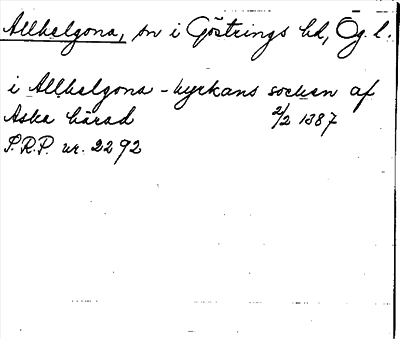 Allhelgona, sn i Göstrings hd, Ög. l.
i Allhelgona - kyrkans socken af
Aska härad 2/2 1387
S.R.P. nr. 2292